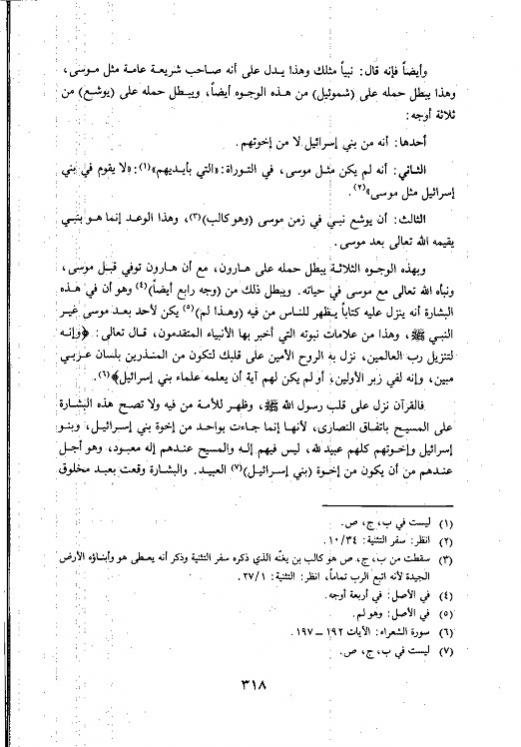 وأيضاً فإنه قال: نبياً مثلك وهذا يدل على أنه صاحب شريعة عامة مثل موسى،
وهذا يبطل حمله على (شموئيل) من هذه الوجوه أيضاً، ويبطل حمله على (يوشع) من
ثلاثة أوجه:
أحدها: أنه من بني إسرائيل لا من إخوتهم.
الثاني: أنه لم يكن مثل موسى، في التوراة: «التي بأيديهم»(١): «لا يقوم في بني
إسرائيل مثل موسى»(٢).
الثالث: أن يوشع نبي في زمن موسى (وهو كالب)(٣)، وهذا الوعد إنما هو بنبي
يقيمه الله تعالى بعد موسى.
وبهذه الوجوه الثلاثة يبطل حمله على هارون، مع أن هارون توفي قبل موسى،
ونبأه الله تعالى مع موسى في حياته. ويبطل ذلك من (وجه رابع أيضاً)(٤) وهو أن في هذه
البشارة أنه ينزل عليه كتاباً يظهر للناس من فيه (وهذا لم)(٥) يكن لأحد بعد موسى غير
النبي ﷺ، وهذا من علامات نبوته التي أخبر بها الأنبياء المتقدمون، قال تعالى: ﴿وإنه
لتنزيل رب العالمين، نزل به الروح الأمين على قلبك لتكون من المنذرين بلسان عربي
مبين، وإنه لفي زبر الأولين، أو لم يكن لهم آية أن يعلمه علماء بني إسرائيل﴾(٦).
فالقرآن نزل على قلب رسول الله ﷺ، وظهر للأمة من فيه ولا تصح هذه البشارة
على المسيح باتفاق النصارى، لأنها إنما جاءت بواحد من إخوة بني إسرائيل، وبنو
إسرائيل وإخوتهم كلهم عبيد لله، ليس فيهم إله والمسيح عندهم إله معبود، وهو أجل
عندهم من أن يكون من إخوة (بني إسرائيل)(٧) العبيد. والبشارة وقعت بعبد مخلوق
(١) ليست في ب، ج، ص.
(٢) انظر: سفر التثنية: ١٠/٣٤.
(٣) سقطت من ب، ج، ص هو كالب بن يفنّه الذي ذكره سفر التثنية وذكر أنه يعطى هو وأبناؤه الأرض
الجيدة لأنه اتبع الرب تماماً، انظر: التثنية: ٢٧/١.
(٤) في الأصل: في أربعة أوجه.
(٥) في الأصل: وهو لم.
(٦) سورة الشعراء: الآيات ١٩٢ – ١٩٧.
(٧) ليست في ب، ج، ص.
٣١٨